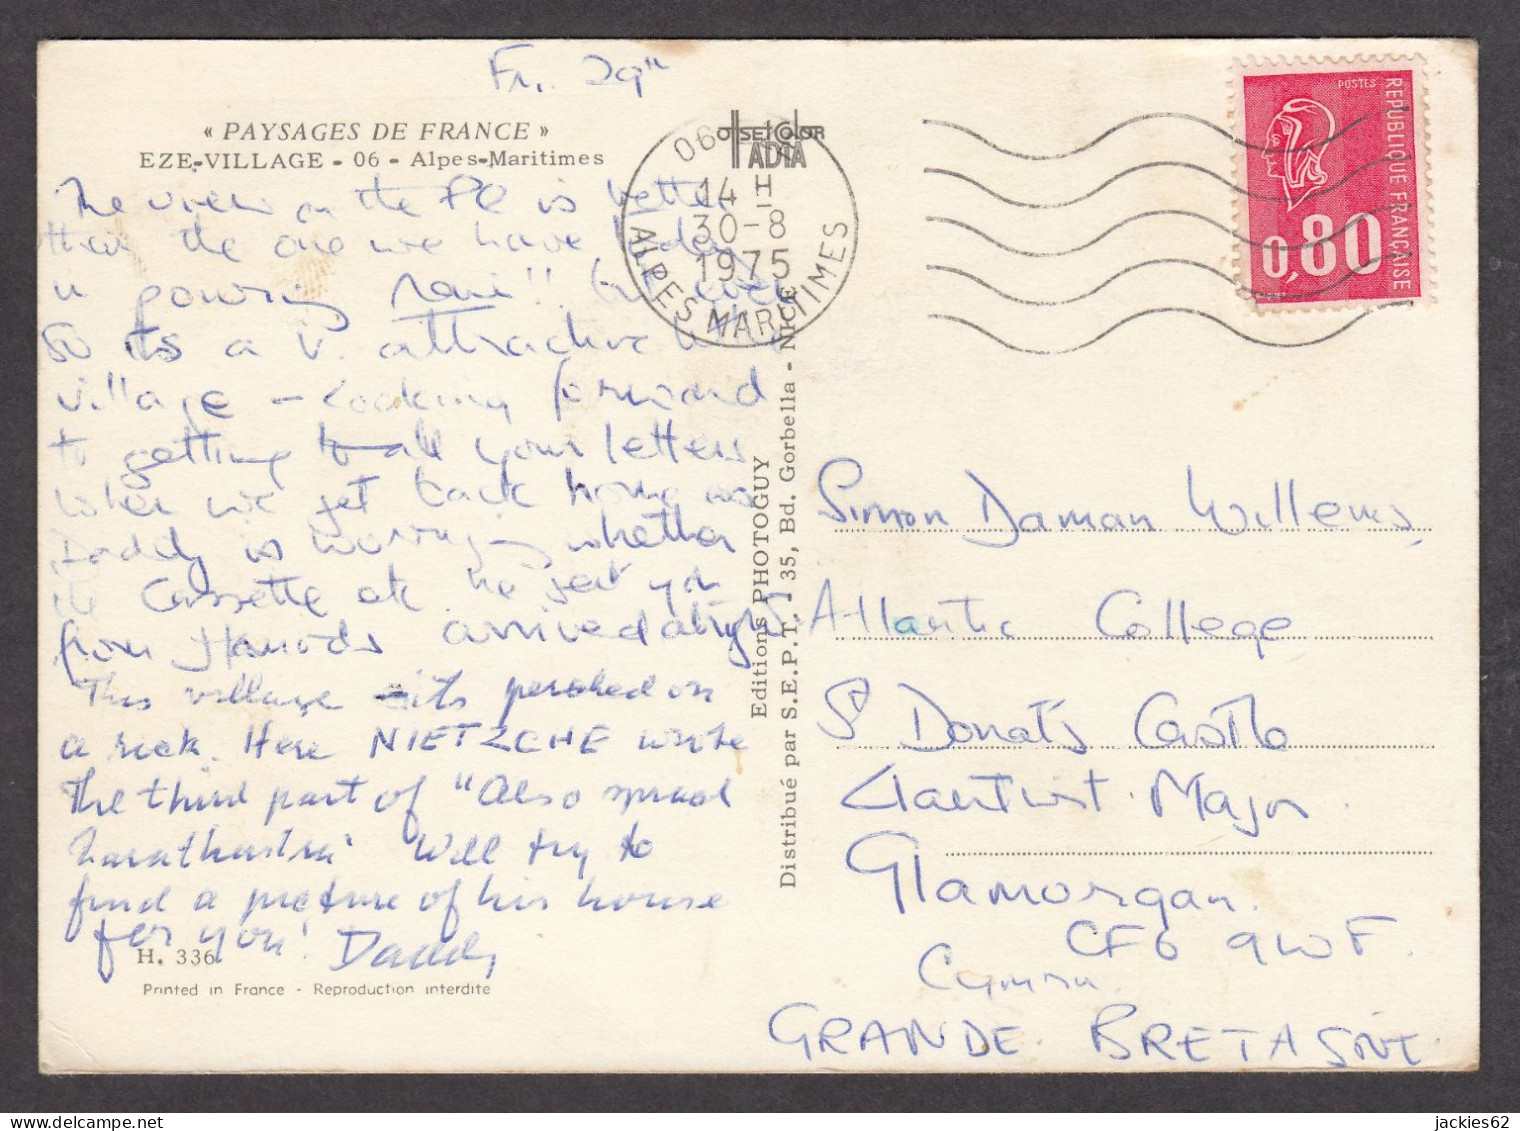 Fr. 29th
« PAYSAGES DE FRANCE »
EZE-VILLAGE - 06 - Alpes-Maritimes
The view on the PC is better
than the one we have today
pouring rain!! but even
so its a v. attractive little
village - looking forward
to getting all your letters
when we get back home as
Daddy is worrying whether
the Cassette etc he sent you
from Harrods arrived alright.
This village sits perched on
a rock. Here NIETZCHE wrote
the third part of "Also sprach
Zarathustra" Will try to
find a picture of his house
for you! Daddy
H. 336
Printed in France - Reproduction interdite
offsetcolor
ADIA
06
14 H
30-8
1975
ALPES MARITIMES
Editions PHOTOGUY
Distribué par S.E.P.T. - 35, Bd. Gorbella - NICE
POSTES
REPUBLIQUE FRANÇAISE
0,80
Simon Daman Willems
Atlantic College
St Donat's Castle
Llantwit Major
Glamorgan.
CF6 9WF.
Cymru.
GRANDE BRETAGNE
jackies62